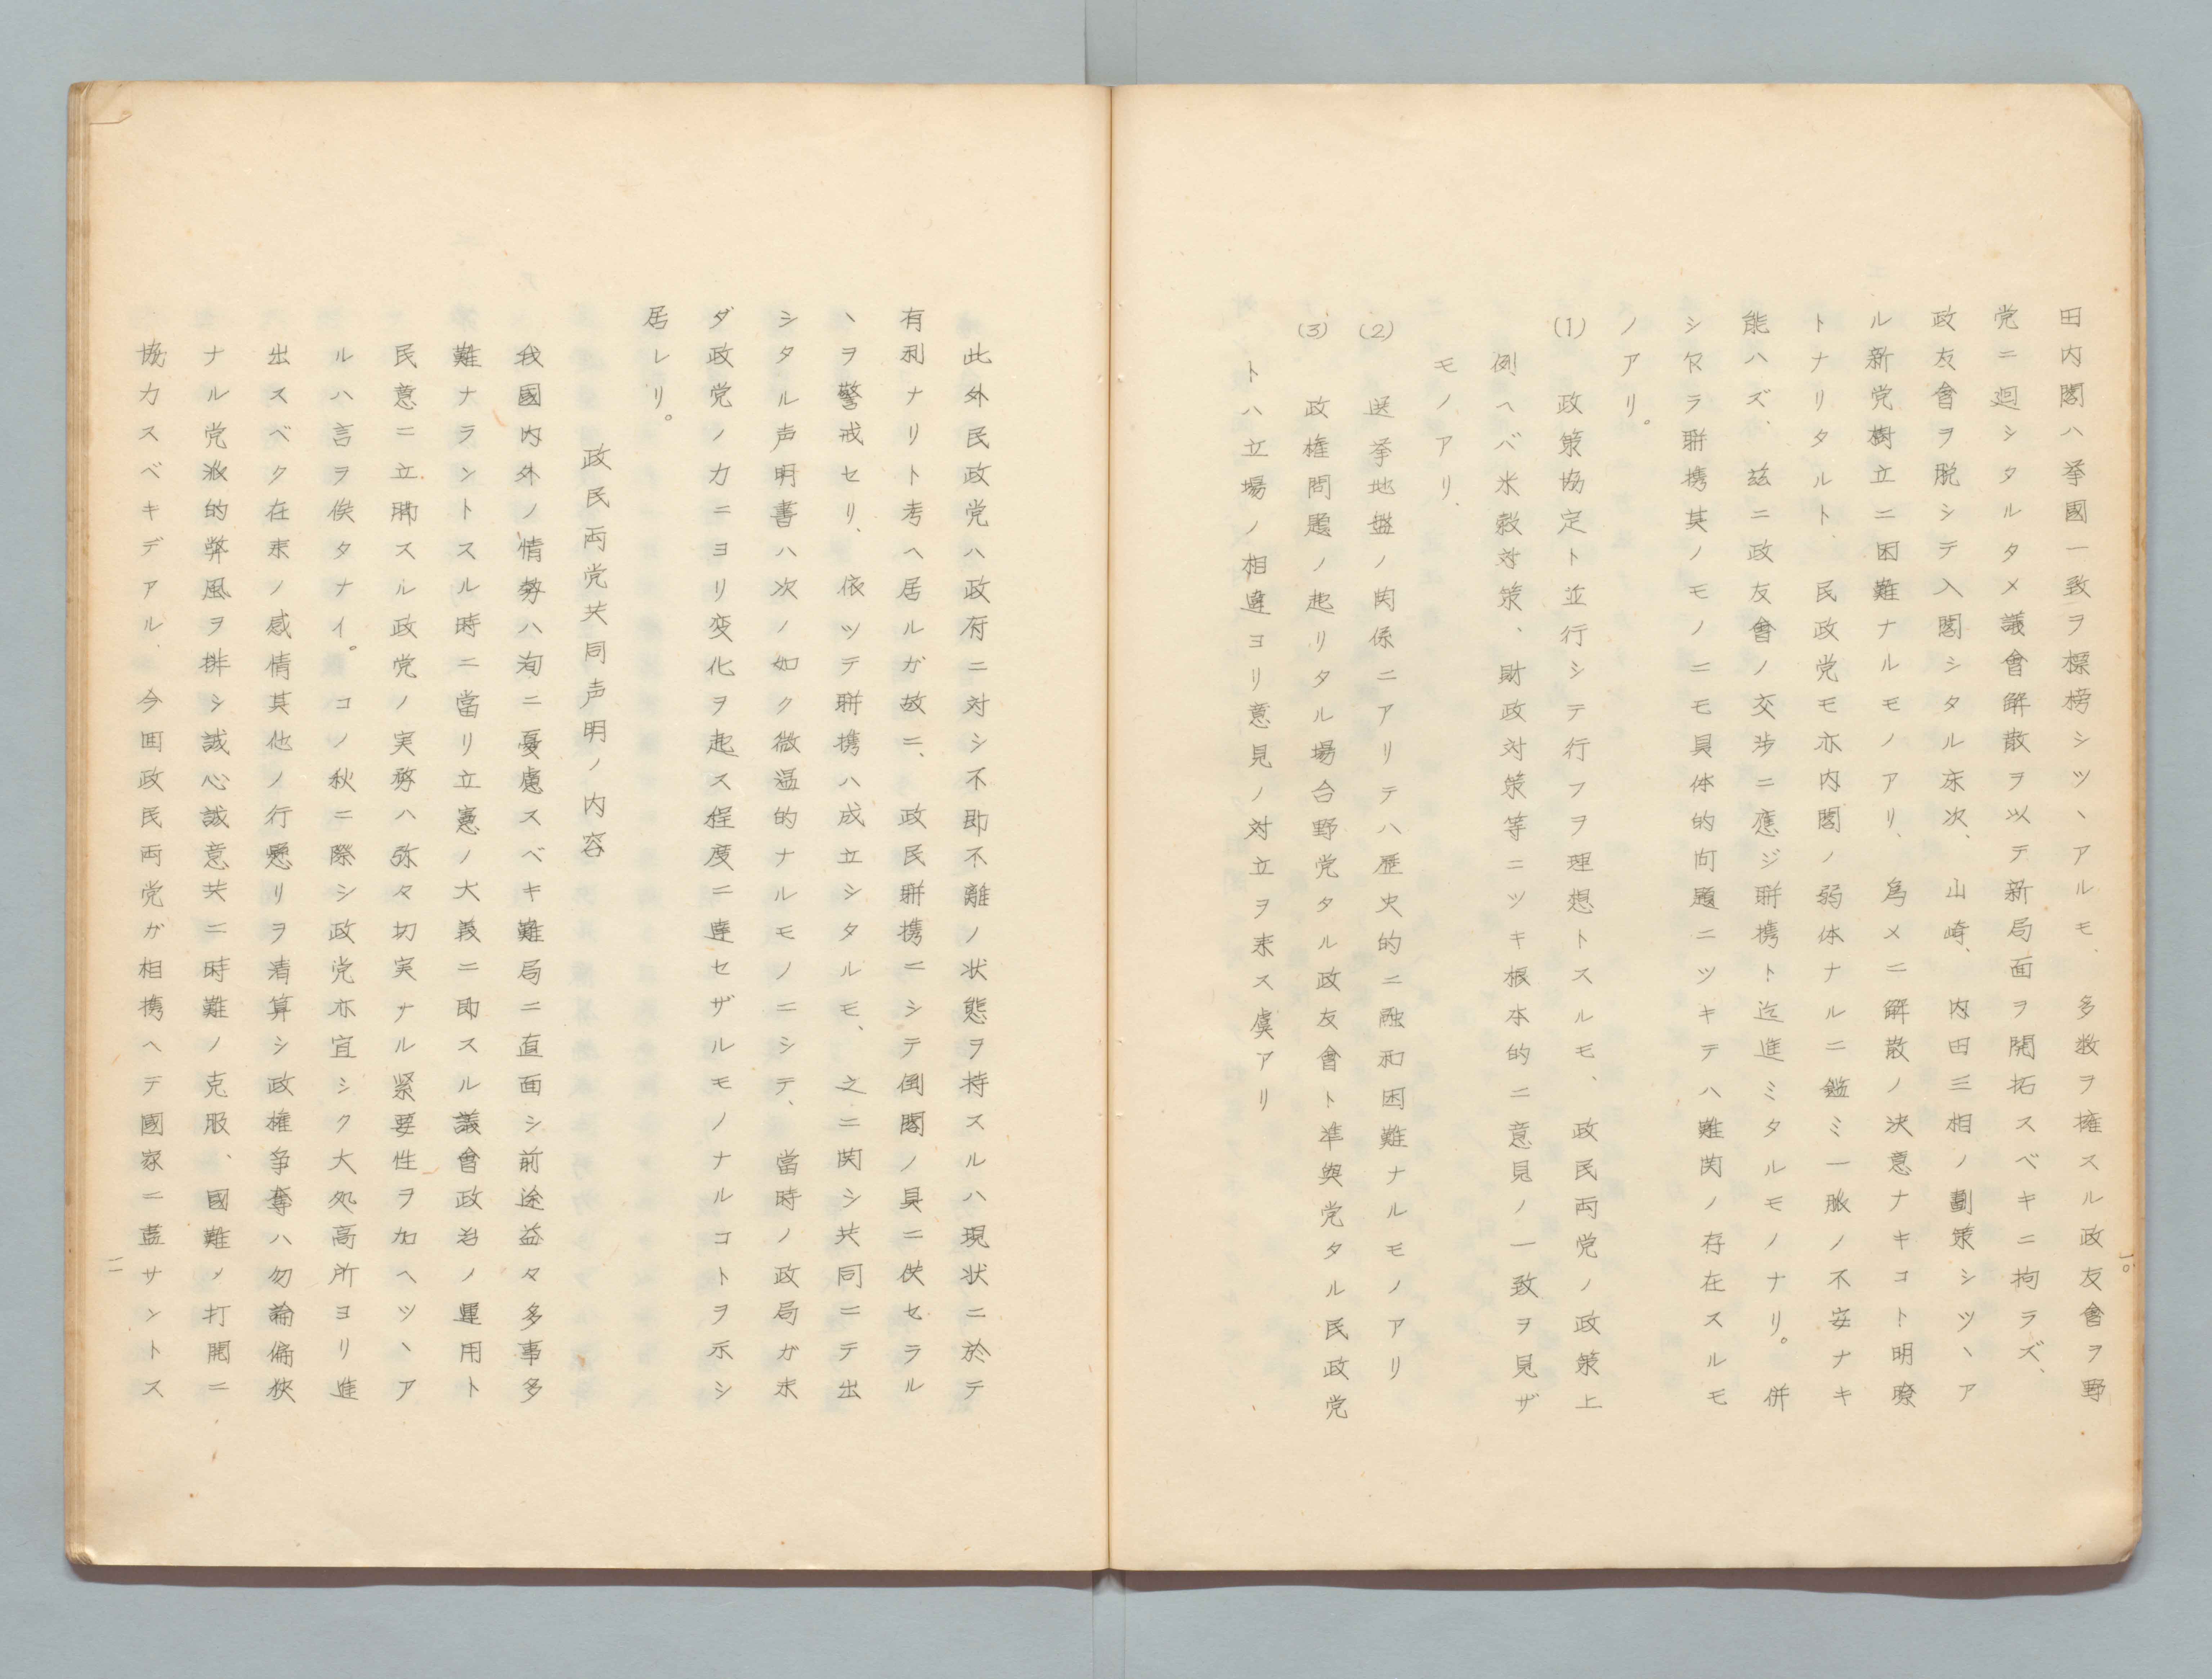 田内閣ハ挙國一致ヲ標榜シツヽアルモ、多数ヲ擁スル政友會ヲ野
党ニ迴シタルタメ議會解散ヲ以テ新局面ヲ開拓スベキニ拘ラズ、
政友會ヲ脱シテ入閣シタル床次、山崎、内田三相ノ劃策シツヽア
ル新党樹立ニ困難ナルモノアリ、為メニ解散ノ決意ナキコト明瞭
トナリタルト、民政党モ亦内閣ノ弱体ナルニ鑑ミ一脈ノ不安ナキ
能ハズ、玆ニ政友會ノ交渉ニ應ジ聯携ト迄進ミタルモノナリ。併
シ乍ラ聯携其ノモノニモ具体的問題ニツキテハ難関ノ存在スルモ
ノアリ。
(1) 政策協定ト並行シテ行フヲ理想トスルモ、政民両党ノ政策上
例ヘバ米穀対策、財政対策等ニツキ根本的ニ意見ノ一致ヲ見ザ
モノアリ、
(2) 選挙地盤ノ関係ニアリテハ歴史的ニ融和困難ナルモノアリ
(3) 政権問題ノ起リタル場合野党タル政友會ト準與党タル民政党
トハ立場ノ相違ヨリ意見ノ対立ヲ来ス虞アリ
一〇
此外民政党ハ政府ニ対シ不即不離ノ状態ヲ持スルハ現状ニ於テ
有利ナリト考ヘ居ルガ故ニ、政民聯携ニシテ倒閣ノ具ニ供セラル
ヽヲ警戒セリ、依ツテ聯携ハ成立シタルモ、之ニ関シ共同ニテ出
シタル声明書ハ次ノ如ク微温的ナルモノニシテ、當時ノ政局ガ未
ダ政党ノカニヨリ変化ヲ起ス程度ニ達セザルモノナルコトヲ示シ
居レリ。
政民両党共同声明ノ内容
我國内外ノ情勢ハ洵ニ憂慮スベキ難局ニ直面シ前途益々多事多
難ナラントスル時ニ當リ立憲ノ大義ニ即スル議會政治ノ運用ト
民意ニ立脚スル政党ノ実務ハ弥々切実ナル緊要性ヲ加ヘツヽア
ルハ言ヲ俟タナイ。コノ秋ニ際シ政党亦宜シク大処高所ヨリ進
出スベク在来ノ感情其他ノ行懸リヲ清算シ政権争奪ハ勿論偏狭
ナル党派的弊風ヲ排シ誠心誠意共ニ時難ノ克服、國難ノ打開ニ
協力スベキデアル、今囬政民両党ガ相携ヘテ國家ニ盡サントス
一一